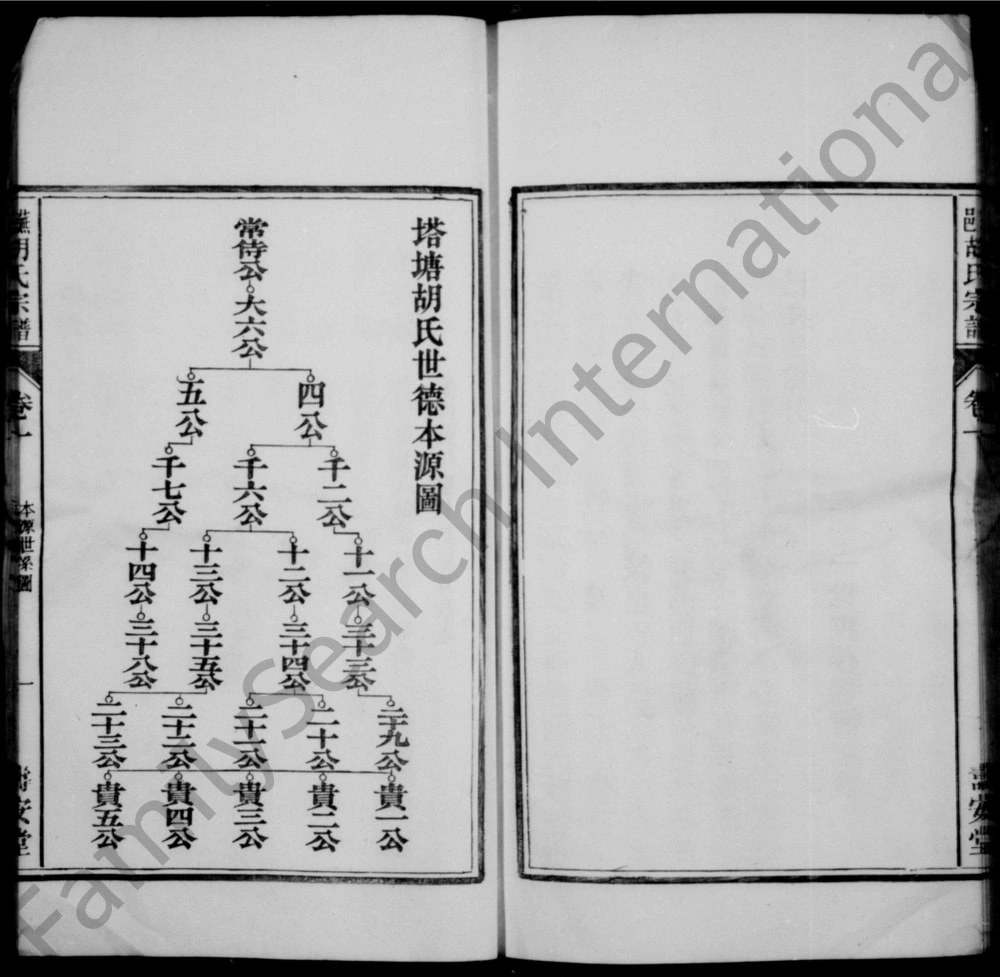 邑胡氏宗譜
卷一
壽安堂
塔塘胡氏世德本源圖
常侍公
大六公
四公
五公
千二公
千六公
千七公
十一公
十二公
十三公
十四公
三十三公
三十四公
三十五公
三十八公
二十九公
二十公
二十一公
二十二公
二十三公
貴一公
貴二公
貴三公
貴四公
貴五公
胡氏宗譜
卷一
本源世系圖
一
壽安堂
FamilySearch International